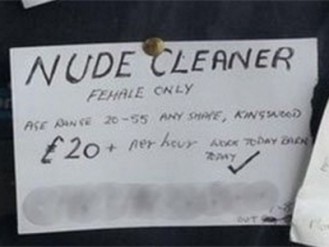 NUDE CLEANER
FEMALE ONLY
AGE RANGE 20-55 ANY SHAPE, KINGSWOOD
£20+ per hour WORK TODAY EARN
TODAY ✓
OUT